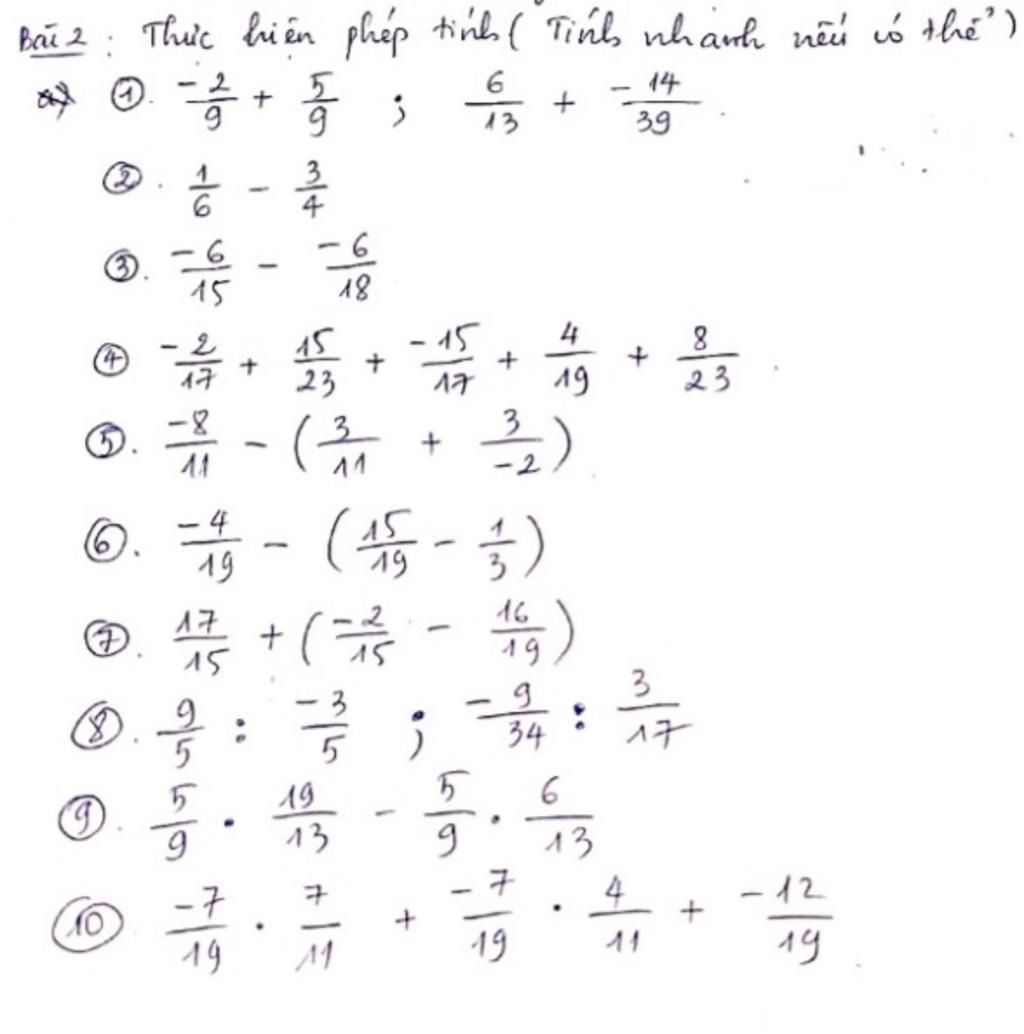 Bài 2 : Thực hiện phép tính ( Tính nhanh nếu có thể )
①. -2/9 + 5/9 ; 6/13 + -14/39
②. 1/6 - 3/4
③. -6/15 - -6/18
④ -2/17 + 15/23 + -15/17 + 4/19 + 8/23
⑤. -8/11 - ( 3/11 + 3/-2 )
⑥. -4/19 - ( 15/19 - 1/3 )
⑦. 17/15 + ( -2/15 - 16/19 )
⑧. 9/5 : -3/5 ; -9/34 : 3/17
⑨. 5/9 . 19/13 - 5/9 . 6/13
⑩ -7/19 . 7/11 + -7/19 . 4/11 + -12/19